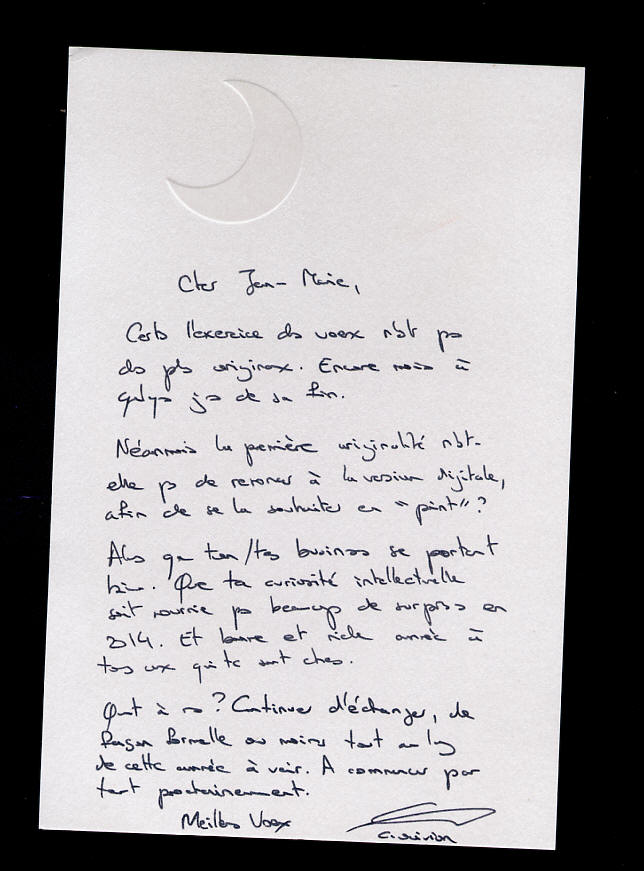 Cher Jean-Marie,
Certes l'exercice des voeux n'est pas
des plus originaux. Encore moins à
quelques jours de sa fin.
Néanmoins la première originalité n'est-
elle pas de renoncer à la version digitale,
afin de se la souhaiter en "print"?
Alors que ton/tes business se portent
bien. Que ta curiosité intellectuelle
soit nourrie par beaucoup de surprises en
2014. Et bonne et riche année à
tous ceux qui te sont chers.
Quant à nous? Continuer d'échanger, de
façon formelle ou moins tout au long
de cette année à venir. A commencer par
très prochainement.
Meilleurs Voeux